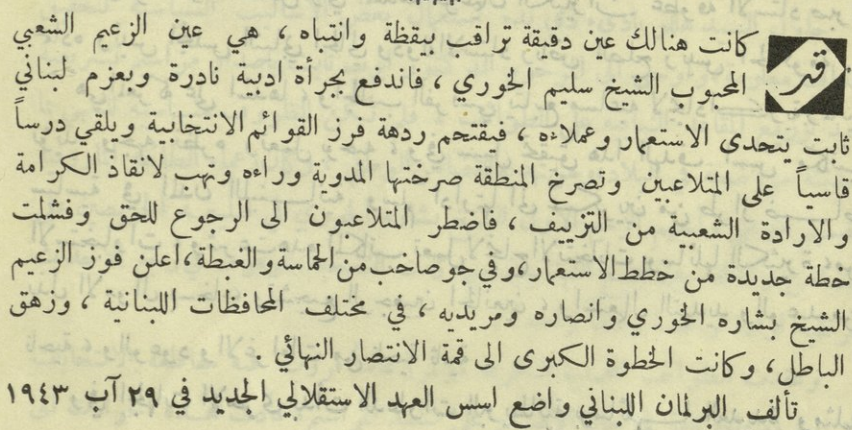 قد كانت هنالك عين دقيقة تراقب بيقظة وانتباه ، هي عين الزعيم الشعبي
المحبوب الشيخ سليم الخوري ، فاندفع بجرأة ادبية نادرة وبعزم لبناني
ثابت يتحدى الاستعمار وعملاءه ، فيقتحم ردهة فرز القوائم الانتخابية ويلقي درساً
قاسياً على المتلاعبين وتصرخ المنطقة صرختها المدوية وراءه وتهب لانقاذ الكرامة
والارادة الشعبية من التزييف ، فاضطر المتلاعبون الى الرجوع للحق وفشلت
خطة جديدة من خطط الاستعمار، وفي جو صاخب من الحماسة والغبطة، اعلن فوز الزعيم
الشيخ بشاره الخوري وانصاره ومريديه ، في مختلف المحافظات اللبنانية ، وزهق
الباطل، وكانت الخطوة الكبرى الى قمة الانتصار النهائي .
تألف البرلمان اللبناني واضع اسس العهد الاستقلالي الجديد في ٢٩ آب ١٩٤٣